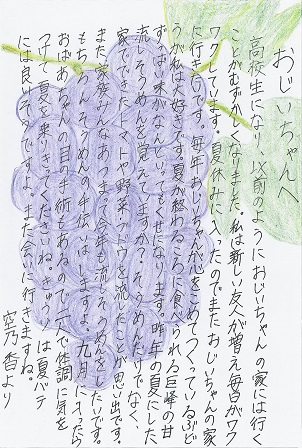 おじいちゃんへ
高校生になり、以前のようにおじいちゃんの家には行く
ことがむずかしくなりました。私は新しい友人が増え毎日がワク
ワクしています。夏休みに入ったのでまたおじいちゃんの家
に行きたいです。毎年おじいちゃんが心をこめてつくっているぶど
うが私は大好きです。夏が終わるころに食べられる巨峰の甘
ずっぱい味がなんといってもくせになります。昨年の夏にした
流しそうめんを覚えてますか？そうめんだけでなく、
家でできたトマトや野菜、ブドウを流したことが思い出です。
また家族みんなあつまって今年も流しそうめんをしたいです。
もちろんそうめんの手伝いはしますよ。九月に入ったら
おばあちゃんの目の手術もあるので二人で体調に気を
つけて夏を乗りきってくださいね。きゅうりは夏バテ
には良いそうですよ。また会いに行きますね。
香より